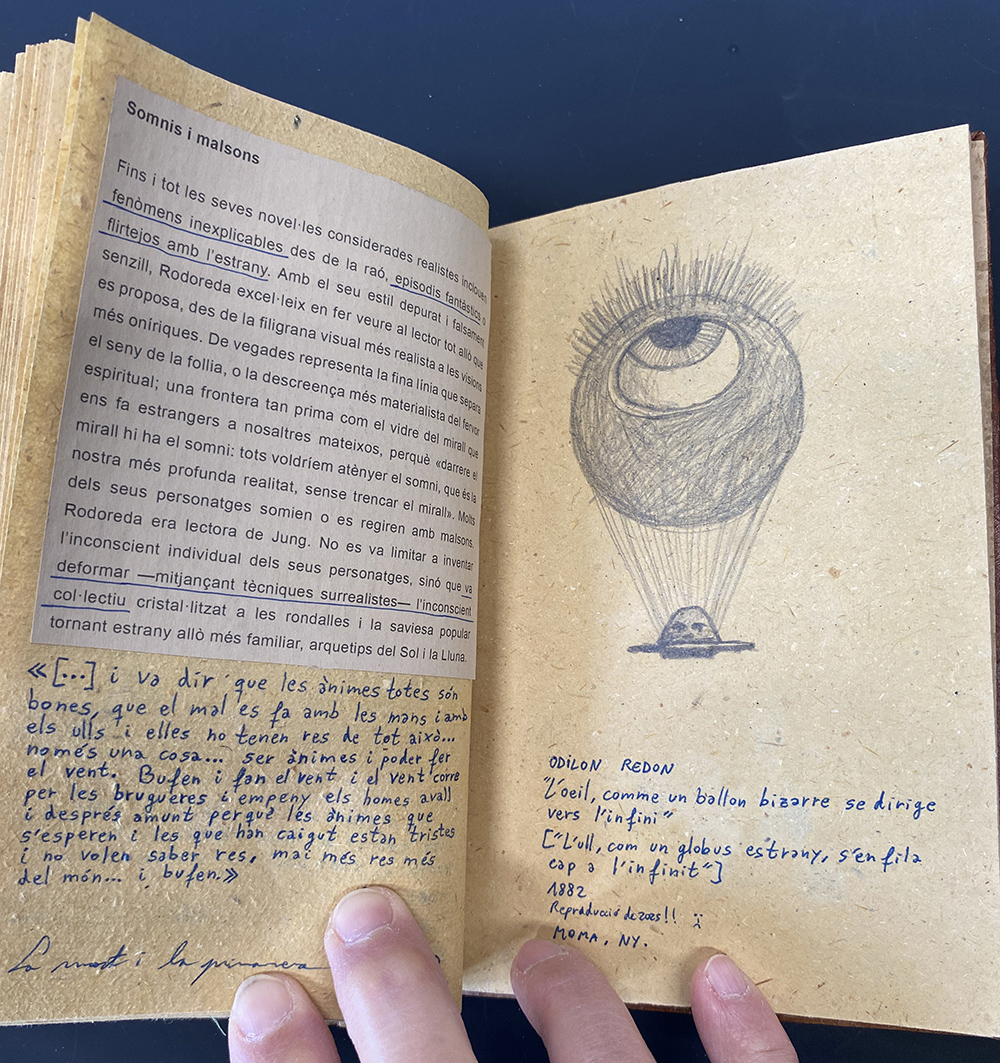 Somnis i malsons
Fins i tot les seves novel·les considerades realistes inclouen
fenòmens inexplicables des de la raó, episodis fantàstics o
flirtejos amb l'estrany. Amb el seu estil depurat i falsament
senzill, Rodoreda excel·leix en fer veure al lector tot allò que
es proposa, des de la filigrana visual més realista a les visions
més oníriques. De vegades representa la fina línia que separa
el seny de la follia, o la descreença més materialista del fervor
espiritual; una frontera tan prima com el vidre del mirall que
ens fa estrangers a nosaltres mateixos, perquè «darrere el
mirall hi ha el somni: tots voldríem atènyer el somni, que és la
nostra més profunda realitat, sense trencar el mirall». Molts
dels seus personatges somien o es regiren amb malsons.
Rodoreda era lectora de Jung. No es va limitar a inventar
l'inconscient individual dels seus personatges, sinó que va
deformar —mitjançant tècniques surrealistes— l'inconscient
col·lectiu cristal·litzat a les rondalles i la saviesa popular
tornant estrany allò més familiar, arquetips del Sol i la Lluna.
«[...] i va dir que les ànimes totes són
bones, que el mal es fa amb les mans i amb
els ulls i elles no tenen res de tot això...
només una cosa... ser ànimes i poder fer
el vent. Bufen i fan el vent i el vent corre
per les brugueres i empeny els homes avall
i després amunt perquè les ànimes que
s'esperen i les que han caigut estan tristes
i no volen saber res, mai més res més
del món... i bufen.»
La mort i la primavera
ODILON REDON
"L'oeil, comme un ballon bizarre se dirige
vers l'infini"
["L'ull, com un globus estrany, s'enfila
cap a l'infinit"]
1882
Reproducció de 2025!!
MOMA, NY.